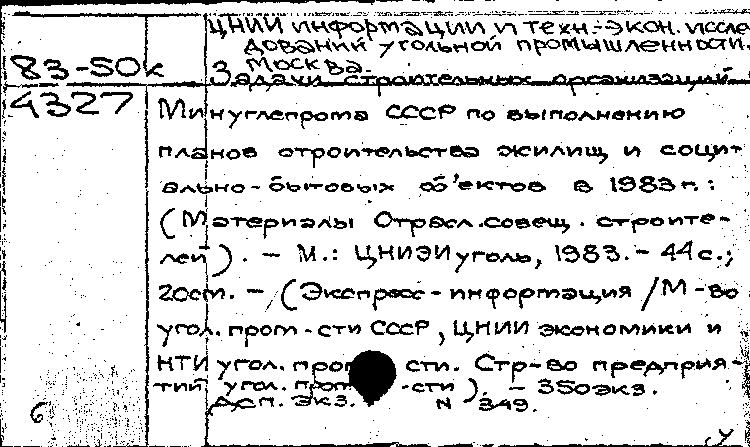 ЦНИИ информации и техн.-экон. иссле
дований угольной промышленности.
Москва.
83-50к
Задачи строительных организаций
4327
Минуглепрома СССР по выполнению
планов строительства жилищ и соци-
ально-бытовых об'ектов в 1983 г.:
(Материалы Отрасл.совещ. строите-
лей). – М.: ЦНИЭИуголь, 1983. – 44 с.;
20см. – (Экспресс-информация / М-во
угол. пром-сти СССР, ЦНИИ экономики и
НТИ угол. пром сти. Стр-во предприя-
тий угол. пром -сти). – 350экз.
экз. N 349.
6